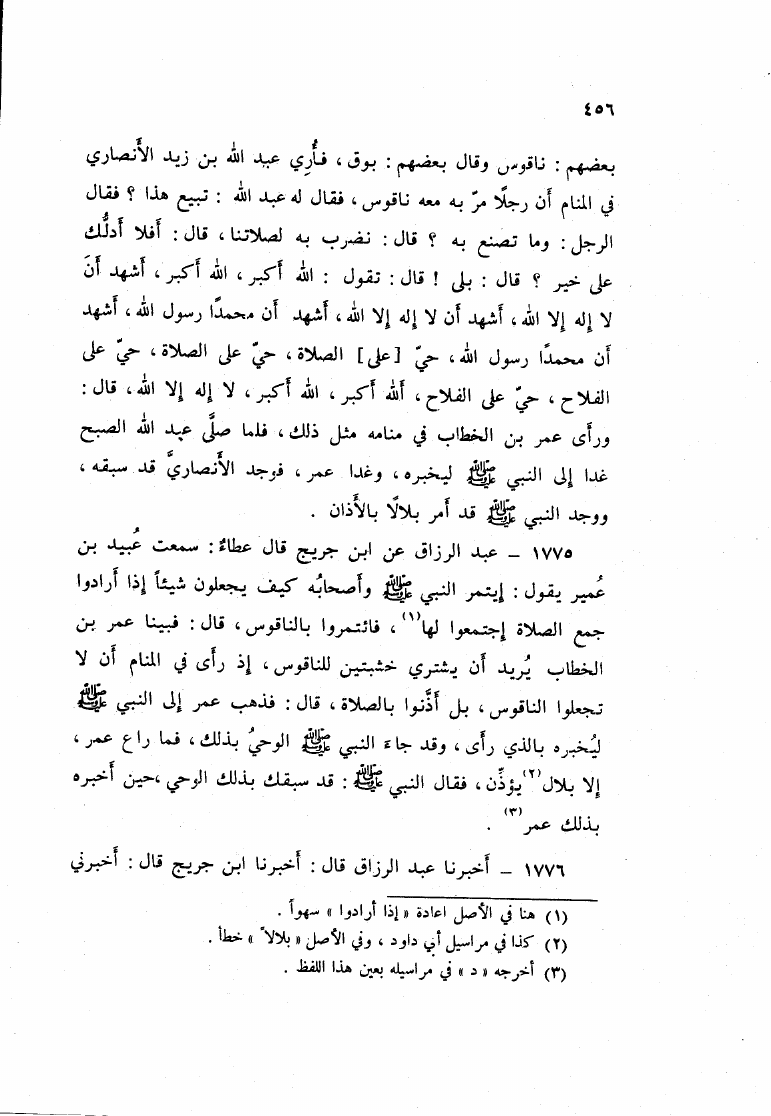 ٤٥٦
بعضهم : ناقوس وقال بعضهم : بوق ، فأُري عبد الله بن زيد الأنصاري
في المنام أن رجلًا مرّ به معه ناقوس ، فقال له عبد الله : تبيع هذا ؟ فقال
الرجل : وما تصنع به ؟ قال : نضرب به لصلاتنا ، قال : أفلا أدلُّك
على خير ؟ قال : بلى ! قال : تقول : الله أكبر ، الله أكبر ، أشهد أنَ
لا إله إلا الله ، أشهد أن لا إله إلا الله ، أشهد أن محمدًا رسول الله ، أشهد
أن محمدًا رسول الله ، حيّ [على] الصلاة ، حيّ على الصلاة ، حيّ على
الفلاح ، حيّ على الفلاح ، ألله أكبر ، الله أكبر ، لا إله إلا الله ، قال :
ورأى عمر بن الخطاب في منامه مثل ذلك ، فلما صلَّى عبد الله الصبح
غدا إلى النبي ﷺ ليخبره ، وغدا عمر ، فوجد الأنصاريَّ قد سبقه ،
ووجد النبي ﷺ قد أمر بلالًا بالأذان .
١٧٧٥ – عبد الرزاق عن ابن جريج قال عطاءٌ : سمعت عُبيد بن
عُمير يقول : إيتمر النبي ﷺ وأصحابُه كيف يجعلون شيئاً إذا أرادوا
جمع الصلاة إجتمعوا لها(١) ، فائتمروا بالناقوس ، قال : فبينا عمر بن
الخطاب يُريد أن يشتري خشبتين للناقوس ، إذ رأى في المنام أن لا
تجعلوا الناقوس ، بل أذّنوا بالصلاة ، قال : فذهب عمر إلى النبي ﷺ
ليُخبره بالذي رأى ، وقد جاءَ النبي ﷺ الوحيُ بذلك ، فما راع عمر ،
إلا بلال(٢) يؤذّن ، فقال النبي ﷺ : قد سبقك بذلك الوحي ،حين أخبره
بذلك عمر(٣) .
١٧٧٦ – أخبرنا عبد الرزاق قال : أخبرنا ابن جريج قال : أخبرني
(١) هنا في الأصل اعادة « إذا أرادوا » سهواً .
(٢) كذا في مراسيل أبي داود ، وفي الأصل « بلالاً » خطأ .
(٣) أخرجه « د » في مراسيله بعين هذا اللفظ .